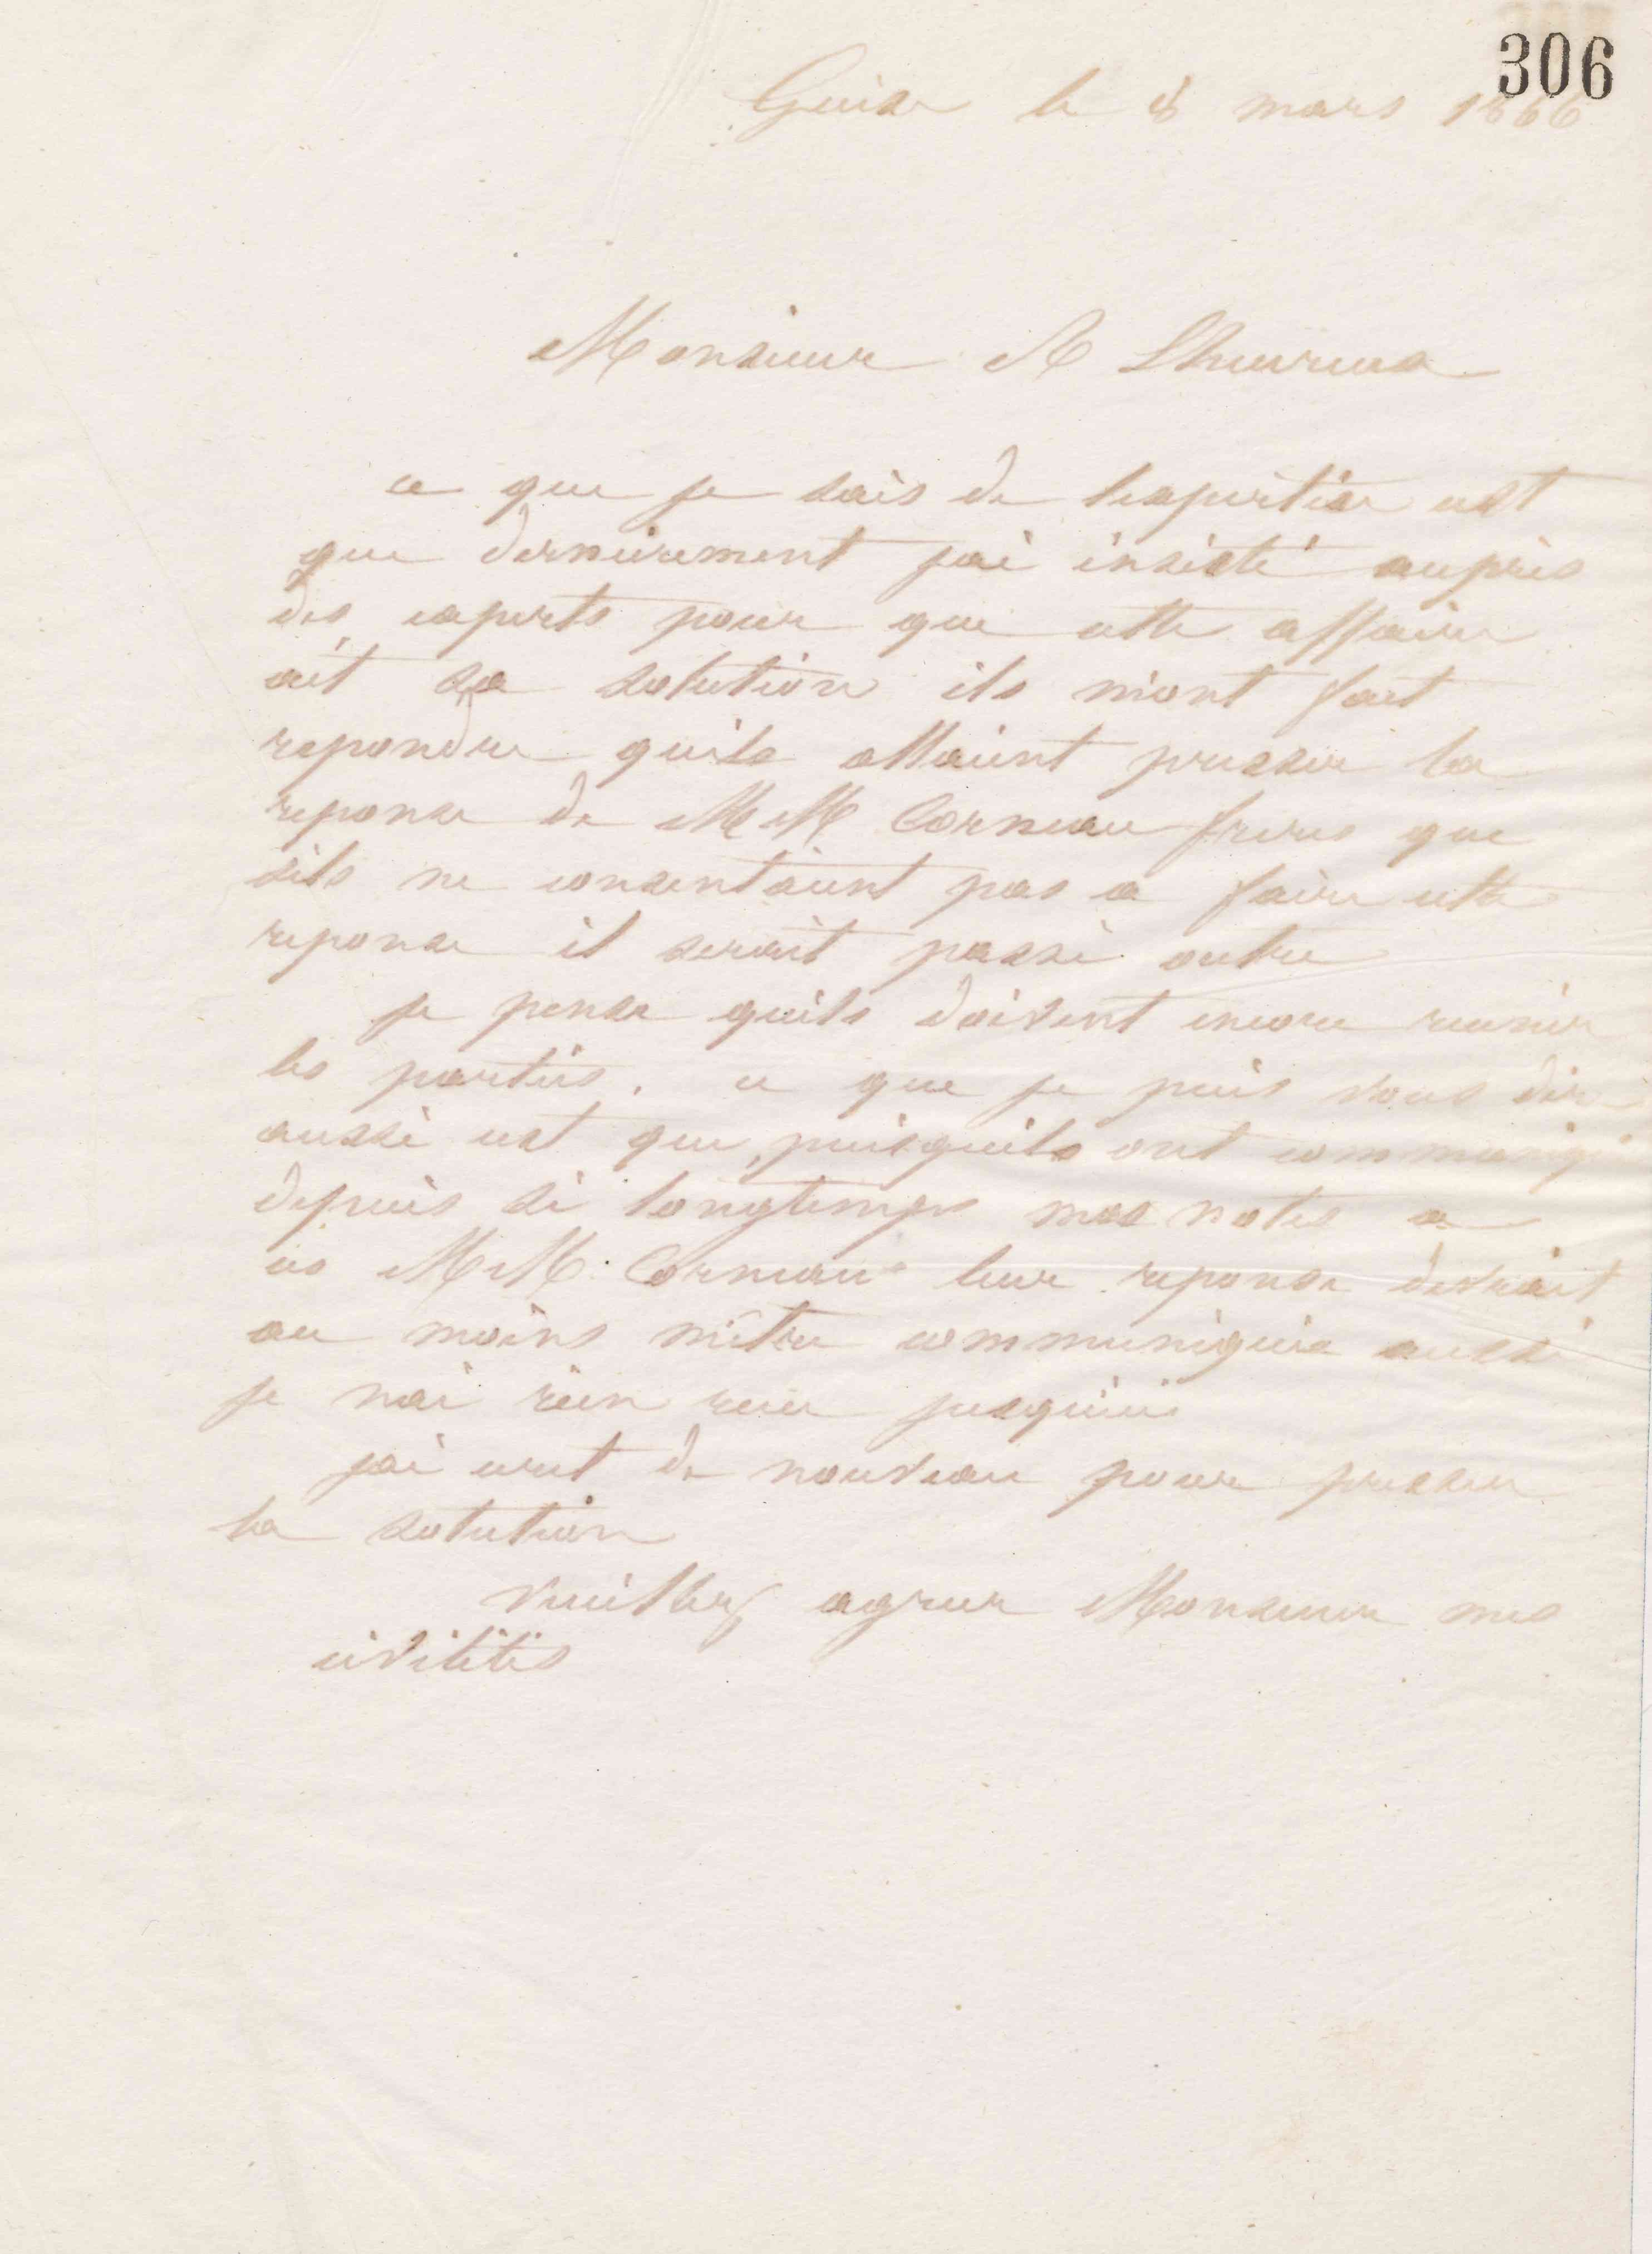 306
Guise le 8 mars 1866
Monsieur A Lheureux
ce que je sais de lexpertise est
que dernierement jai insisté auprès
des experts pour que cette affaire
ait sa solution ils m'ont fait
repondre quils allaient presser la
reponse de MM Corneau freres que
sils ne consentaient pas a faire cette
reponse il serait passé outre
je pense quils doivent encore reunir
les parties. ce que je puis vous dire
aussi est que puisquils ont communiqué
depuis si longtemps mes notes a
ces MM. Corneau leur reponse devrait
au moins mêtre communiquée aussi
je nai rien recu jusquici
jai ecrit de nouveau pour presser
la solution
veuillez agreer Monsieur mes
civilités